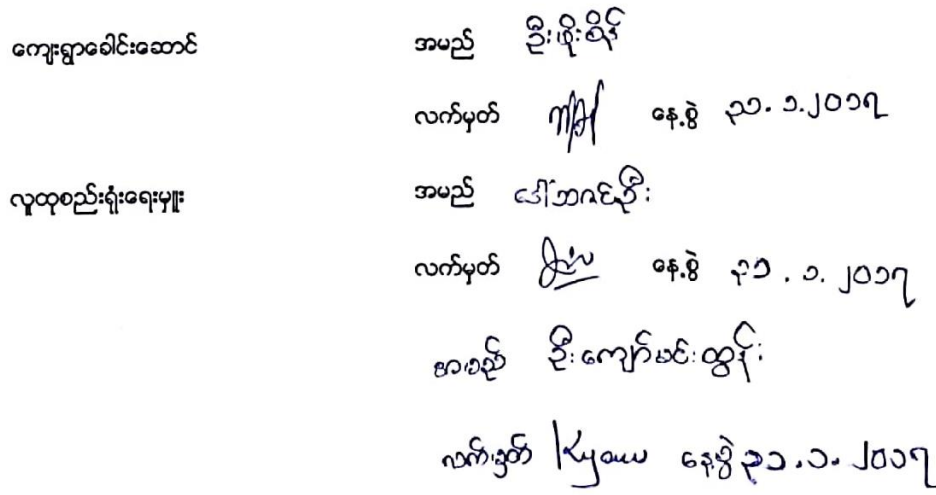 ကျေးရွာခေါင်းဆောင် အမည် ဦးဖိုးစိန်
လက်မှတ် နေ့စွဲ ၃၁.၁.၂၀၁၇
လူထုစည်းရုံးရေးမှူး အမည် ဒေါ်ဘဂင်ဦး
လက်မှတ် နေ့စွဲ ၃၁.၁.၂၀၁၇
အမည် ဦးကျော်မင်းထွန်း
လက်မှတ် Kyaw နေ့စွဲ ၃၁.၁.၂၀၁၇